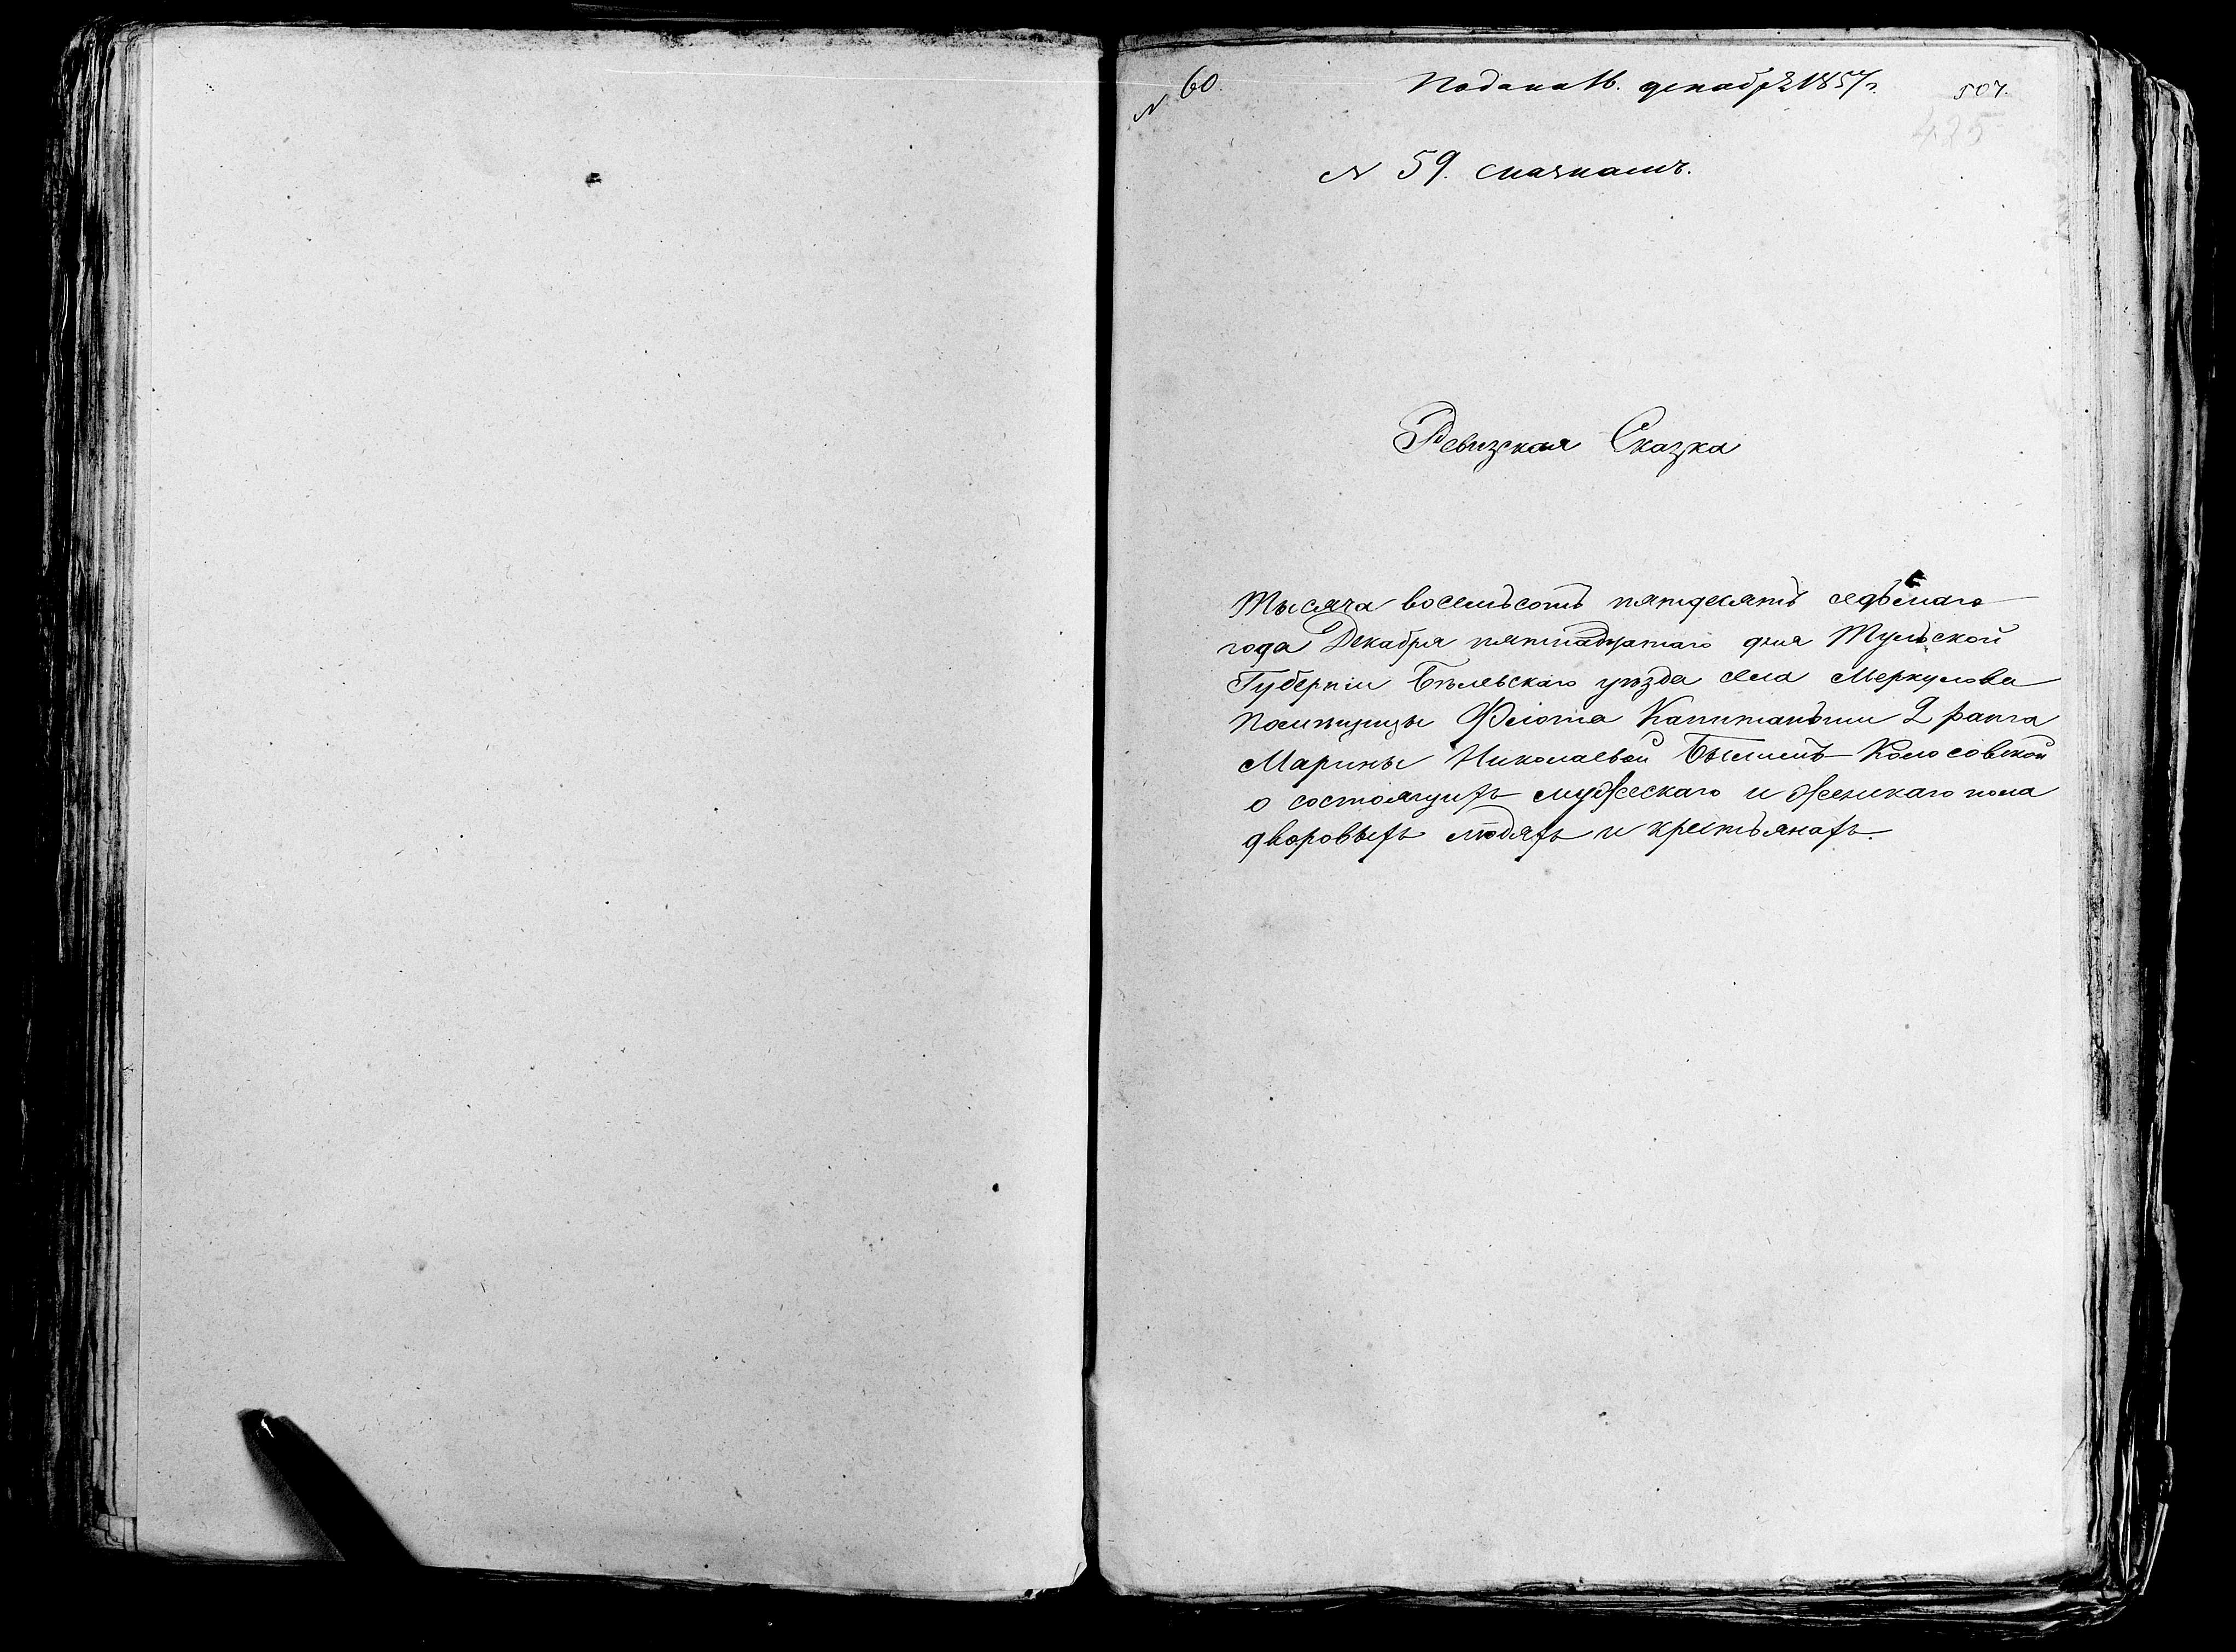 N 60.
Подана 16. декабря 1857 г.
507.
425
N 59. сказкамъ.
Ревизская Сказка
Тысяча восемьсотъ пятдесятъ седьмаго
года Декабря пятнадцатаго дня Тульской
Губерніи Бѣлевскаго уѣзда села Меркулова
Помѣщицы Флота Капитаньши 2 ранга
Марины Николаевой Бышинъ-Колосовской
о состоящихъ мужескаго и женскаго пола
дворовыхъ людяхъ и крестьянахъ.